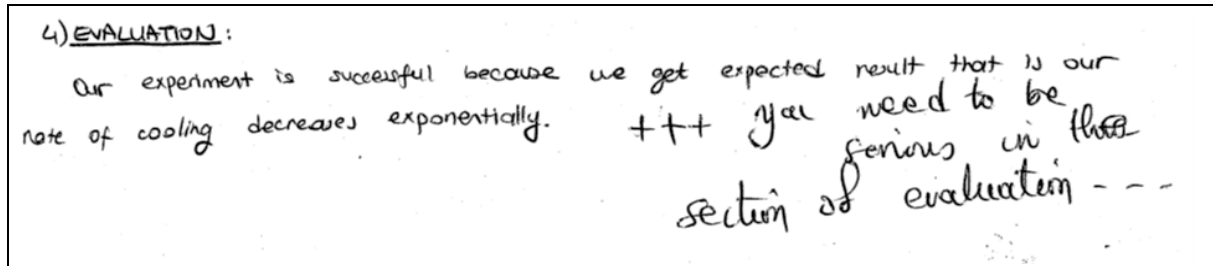 4) EVALUATION:
Our experiment is successful because we get expected result that is our
rate of cooling decreases exponentially. +++ you need to be
serious in this
section of evaluation - - -